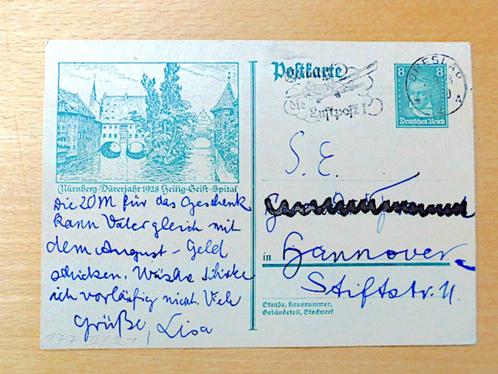 Postkarte
8 8
Deutsches Reich
BRESLAU
die
Luftpost!
Nürnberg-Dürerjahr 1928 Heilig-Geist-Spital
Die 20 M für das Geschenk
kann Vater gleich mit
dem August-Geld
schicken. Wäsche schicke
ich vorläufig nicht. Viele
Grüße, Lisa
S. E.
in Hannover
Stiftstr. 11.
Straße, Hausnummer,
Gebäudeteil, Stockwerk